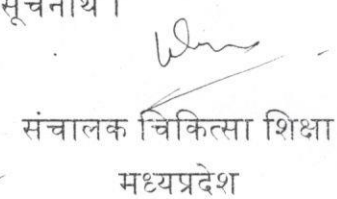 सूचनार्थ।
संचालक चिकित्सा शिक्षा
मध्यप्रदेश